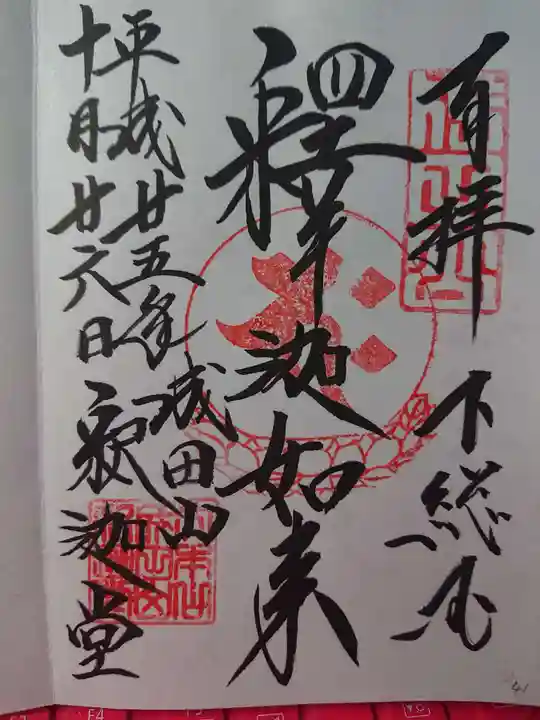 奉拝 下総国
釋迦如来
平成廿五年 成田山
十月廿六日 釈迦堂
41
F4